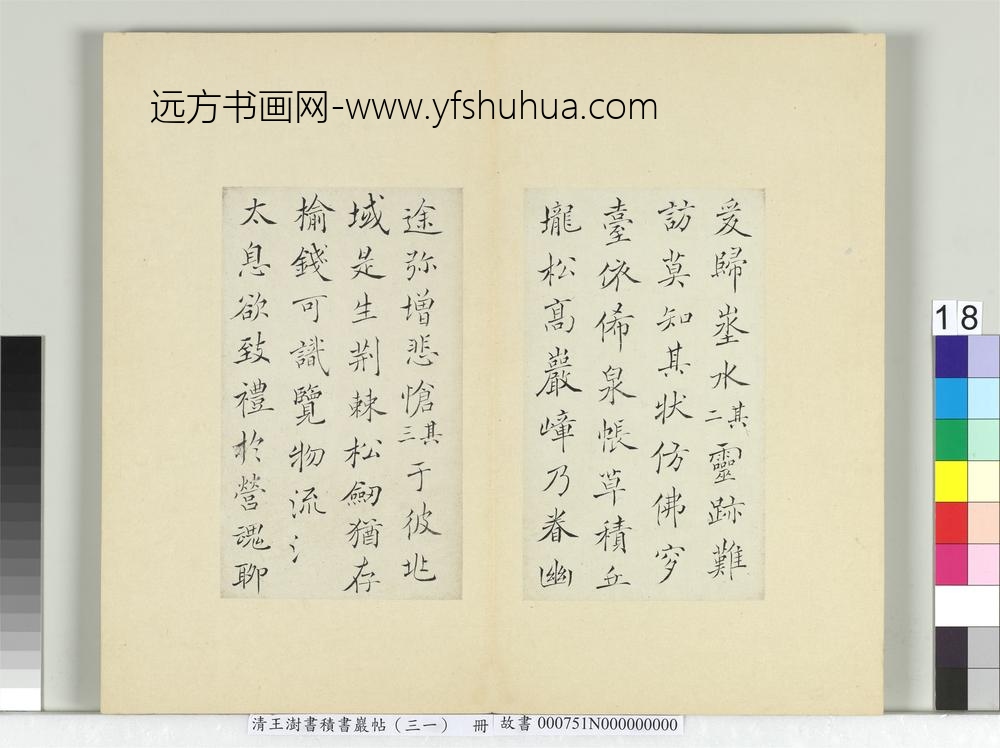 远方书画网-www.yfshuhua.com
爰歸峚水其二靈跡難
訪莫知其狀仿佛穸
臺依俙泉帳草積丘
壠松髙巖嶂乃眷幽
途弥增悲愴其三于彼兆
域是生荆棘松劒猶存
榆錢可識覽物流〻
太息欲致禮於營魂聊
18
清王澍書積書巖帖（三一） 冊 故書 000751N000000000